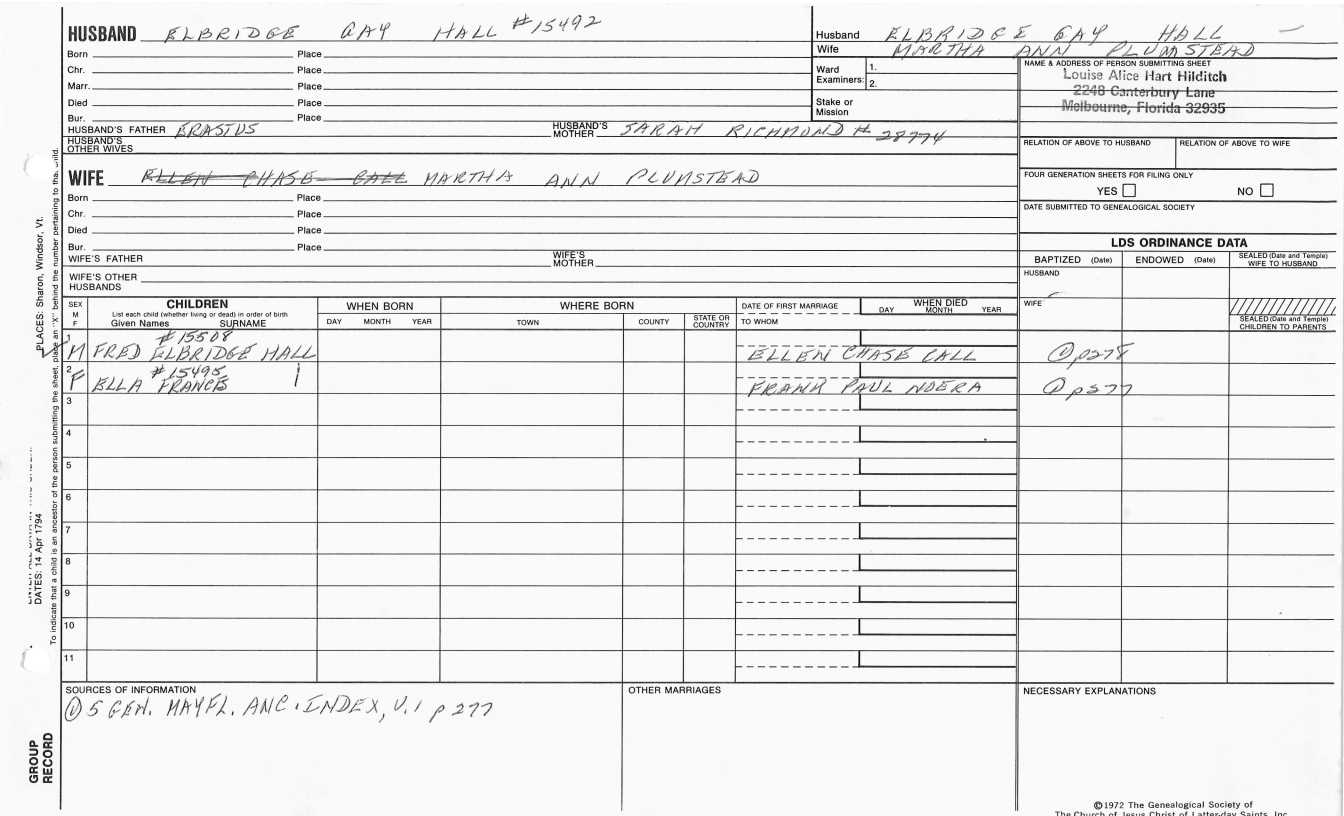 HUSBAND ELBRIDGE GAY HALL #15492
Born Place
Chr. Place
Marr. Place
Died Place
Bur. Place
HUSBAND'S FATHER ERASTUS HUSBAND'S MOTHER SARAH RICHMOND # 28774
HUSBAND'S OTHER WIVES
WIFE ELLEN CHASE CALL MARTHA ANN PLUMSTEAD
Born Place
Chr. Place
Died Place
Bur. Place
WIFE'S FATHER WIFE'S MOTHER
WIFE'S OTHER HUSBANDS
Husband ELBRIDGE GAY HALL
Wife MARTHA ANN PLUMSTEAD
Ward Examiners: 1. 2.
Stake or Mission
NAME & ADDRESS OF PERSON SUBMITTING SHEET
Louise Alice Hart Hilditch
2248 Canterbury Lane
Melbourne, Florida 32935
RELATION OF ABOVE TO HUSBAND RELATION OF ABOVE TO WIFE
FOUR GENERATION SHEETS FOR FILING ONLY
YES NO
DATE SUBMITTED TO GENEALOGICAL SOCIETY
LDS ORDINANCE DATA
BAPTIZED (Date) ENDOWED (Date) SEALED (Date and Temple) WIFE TO HUSBAND
HUSBAND
WIFE
SEALED (Date and Temple) CHILDREN TO PARENTS
SEX M F
CHILDREN
List each child (whether living or dead) in order of birth
Given Names SURNAME
WHEN BORN
DAY MONTH YEAR
WHERE BORN
TOWN COUNTY STATE OR COUNTRY
DATE OF FIRST MARRIAGE
TO WHOM
WHEN DIED
DAY MONTH YEAR
#15508
M FRED ELBRIDGE HALL ELLEN CHASE CALL ① p278
2 #15495
F ELLA FRANCES FRANK PAUL NOERA ① p277
3
4
5
6
7
8
9
10
11
SOURCES OF INFORMATION
① 5 GEN. MAYFL. ANC. INDEX, V.1 p 277
OTHER MARRIAGES
NECESSARY EXPLANATIONS
©1972 The Genealogical Society of
The Church of Jesus Christ of Latter-day Saints, Inc.
GROUP RECORD
DATES: 14 Apr 1794
PLACES: Sharon, Windsor, Vt.
To indicate that a child is an ancestor of the person submitting the sheet, place an "X" behind the number pertaining to that child.